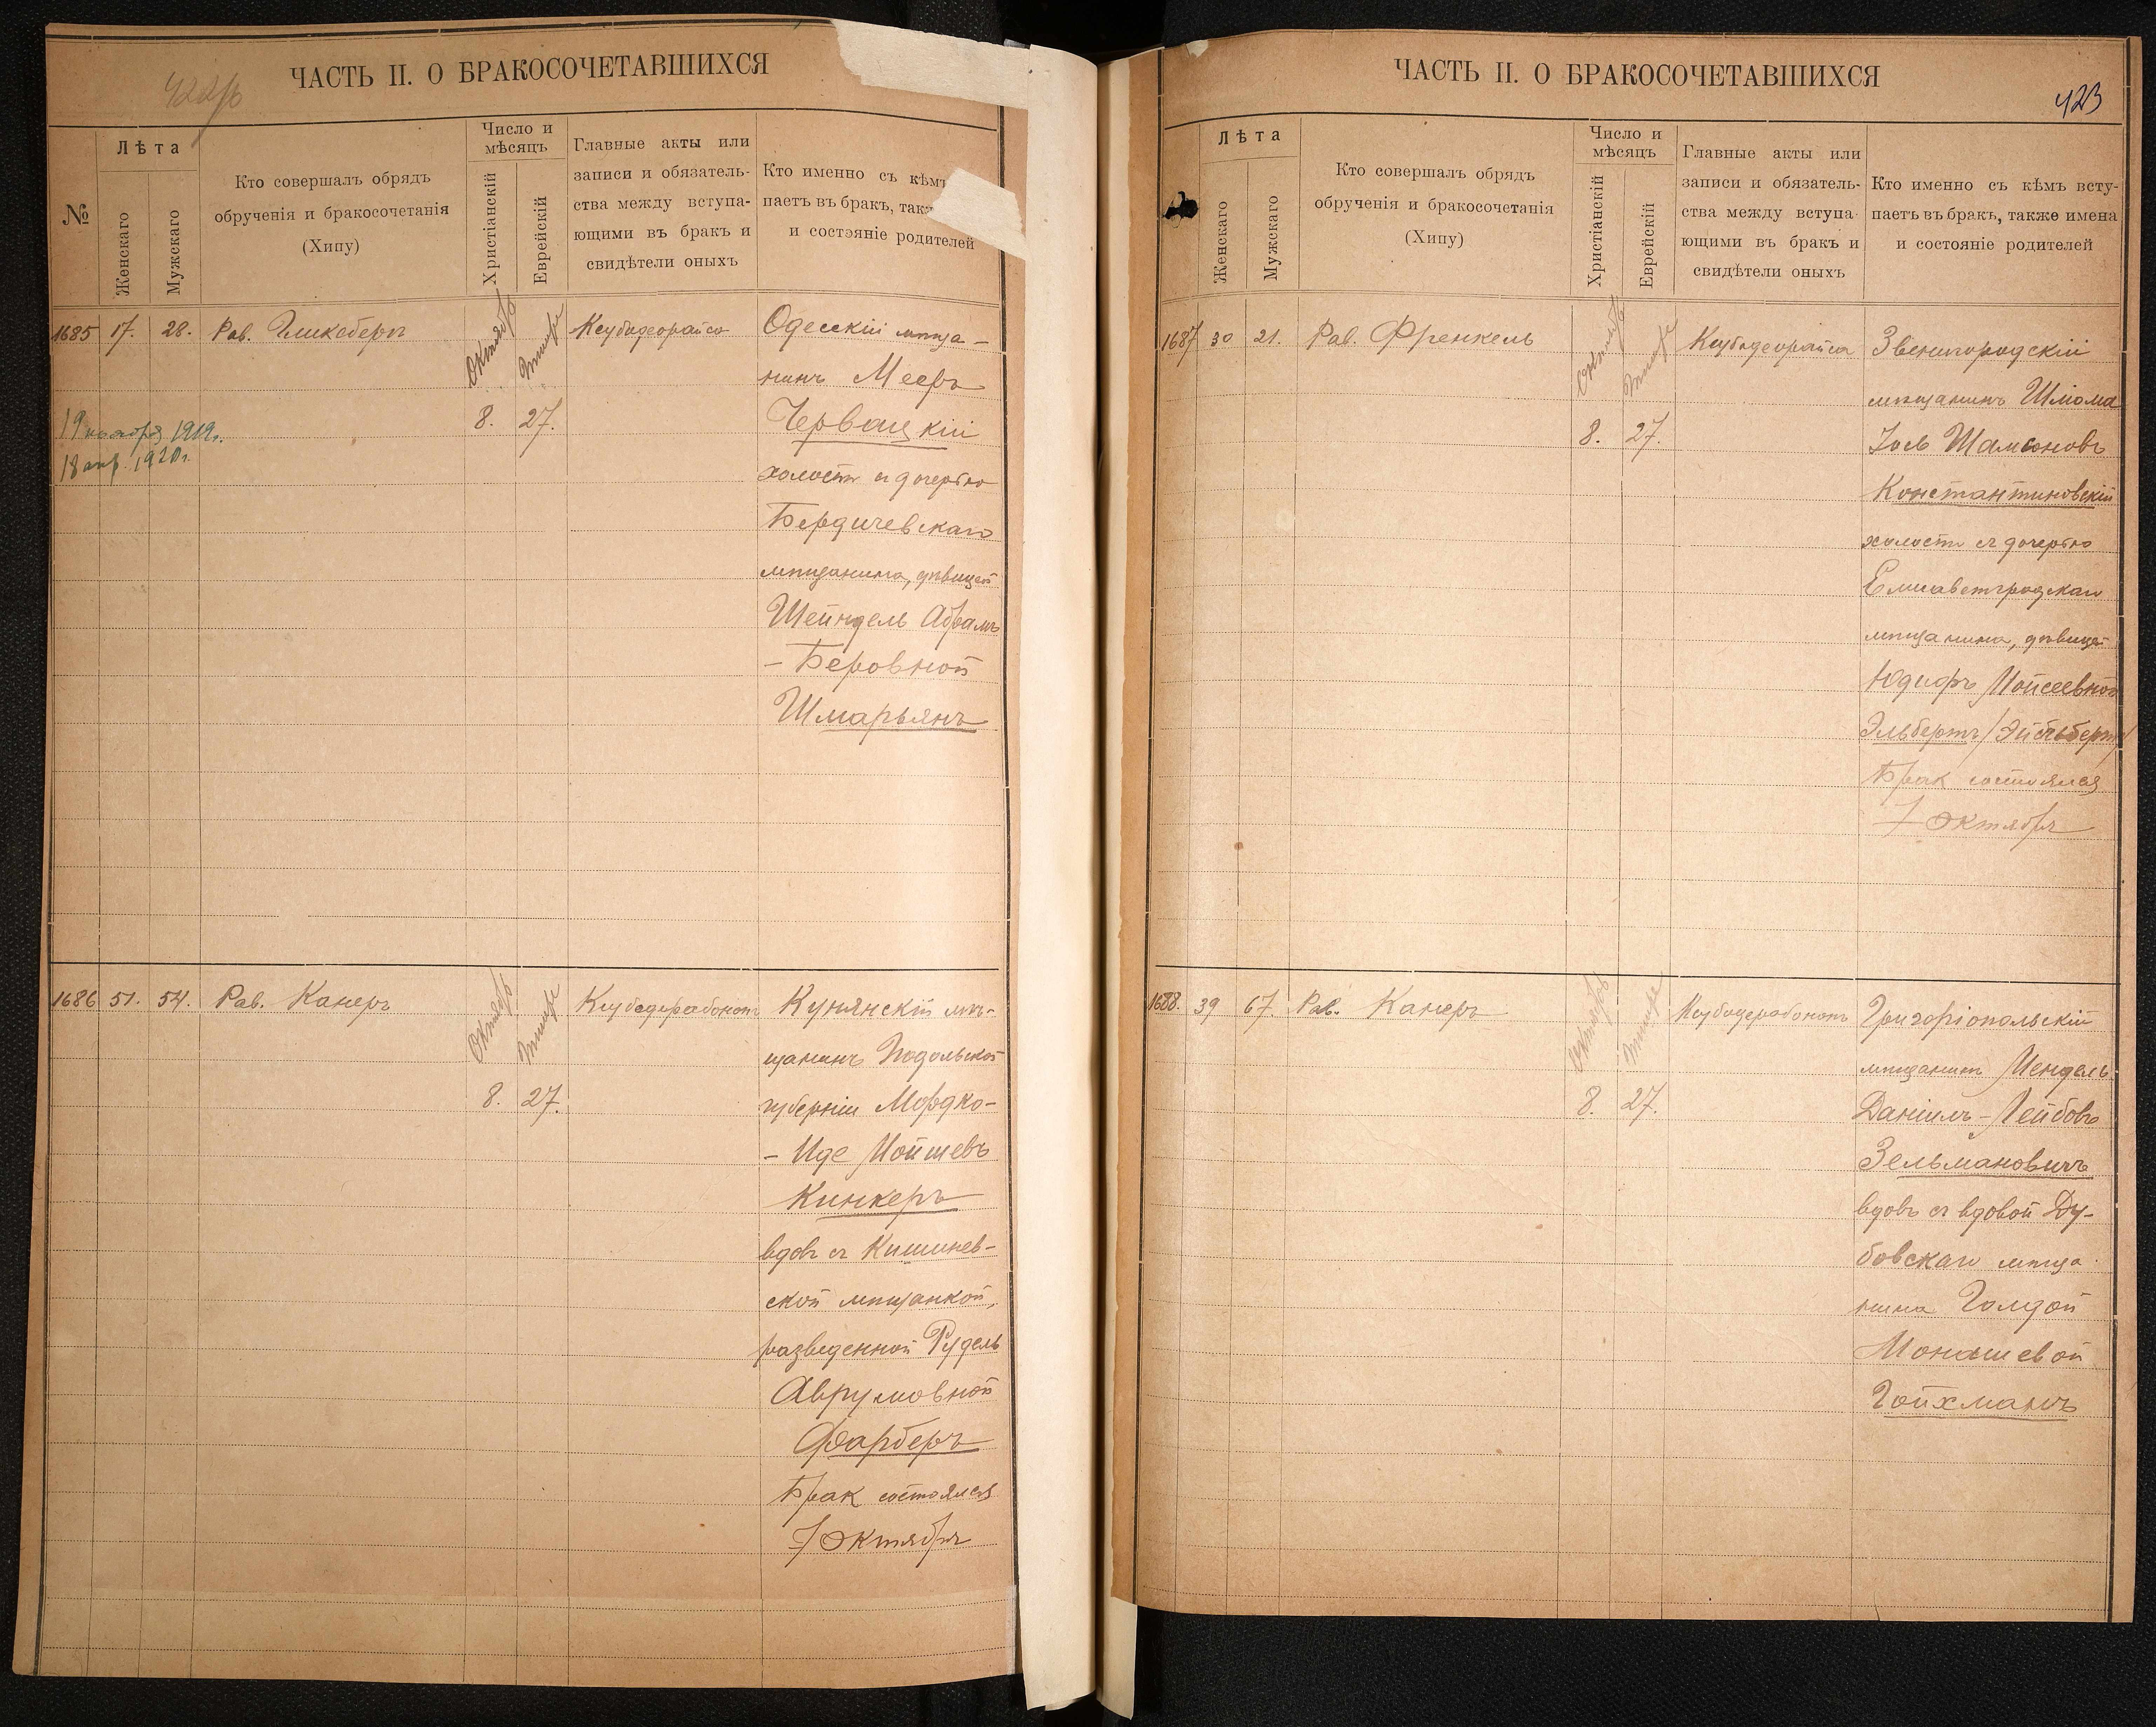 422/б
ЧАСТЬ II. О БРАКОСОЧЕТАВШИХСЯ
№
Лѣта
Женскаго
Мужскаго
Кто совершалъ обрядъ
обрученія и бракосочетанія
(Хипу)
Число и
мѣсяцъ
Христіанскій
Еврейскій
Главные акты или
записи и обязатель-
ства между вступа-
ющими въ бракъ и
свидѣтели оныхъ
Кто именно съ кѣмъ
паетъ въ бракъ, так
и состояніе родителей
1685
17.
28.
Рав. Гликсбергъ
Октябрь
Тишре
8.
27.
Ксубадеорайса
19 ноября 1919г.
18 апр. 1920г.
Одесскій мѣща-
нинъ Мееръ
Червацкій
холостъ съ дочерью
Бердичевскаго
мѣщанина, дѣвицей
Шейндель Абрамъ
-Беровной
Шмарьянъ
1686
51.
54.
Рав. Канеръ
Октябрь
Тишре
8.
27.
Ксубадерабононъ
Кунянскій мѣ-
щанинъ Подольской
губерніи Мордко-
-Иде Мойшевъ
Кинкеръ
вдовъ съ Кишинев-
ской мѣщанкой,
разведенной Рудель
Аврумовной
Фарберъ
Брак состоялся
7 Октября
ЧАСТЬ II. О БРАКОСОЧЕТАВШИХСЯ
423
Лѣта
Женскаго
Мужскаго
Кто совершалъ обрядъ
обрученія и бракосочетанія
(Хипу)
Число и
мѣсяцъ
Христіанскій
Еврейскій
Главные акты или
записи и обязатель-
ства между вступа-
ющими въ бракъ и
свидѣтели оныхъ
Кто именно съ кѣмъ всту-
паетъ въ бракъ, также имена
и состояніе родителей
1687
30
21.
Рав. Френкель
Октябрь
Тишре
8.
27.
Ксубадеорайса
Звенигородскій
мѣщанинъ Шлома
Іось Шамсоновъ
Константиновскій
холостъ съ дочерью
Елисаветградскаго
мѣщанина, дѣвицей
Юдифъ Мойсеевной
Эльбертъ
Брак состоялся
7 Октября
1688.
39
67.
Рав. Канеръ
Октябрь
Тишре
8.
27.
Ксубадерабононъ
Григоріопольскій
мѣщанинъ Мендель
Даніилъ-Лейбовъ
Зельмановичъ
вдовъ съ вдовой Ду-
бовскаго мѣща-
нина Голдой
Монашевой
Гойхманъ